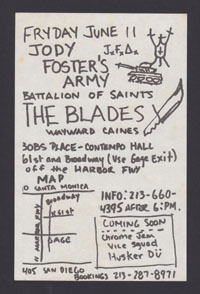 FRYDAY JUNE 11
JODY J.F.A.
FOSTER'S
ARMY
BATTALION OF SAINTS
THE BLADES
WAYWARD CAINES
BOBS PLACE - CONTEMPO HALL
61st and Broadway (Use Gage Exit)
off the HARBOR FWY
MAP
10 SANTA MONICA
Broadway
X 61st
11 HARBOR FWY
GAGE
405 SAN DIEGO
INFO: 213-660-
4395 AFTER 6:P.M.
COMING SOON
Chrome Jean
Vice Squad
Husker Dü
BOOKINGS 213-787-8971